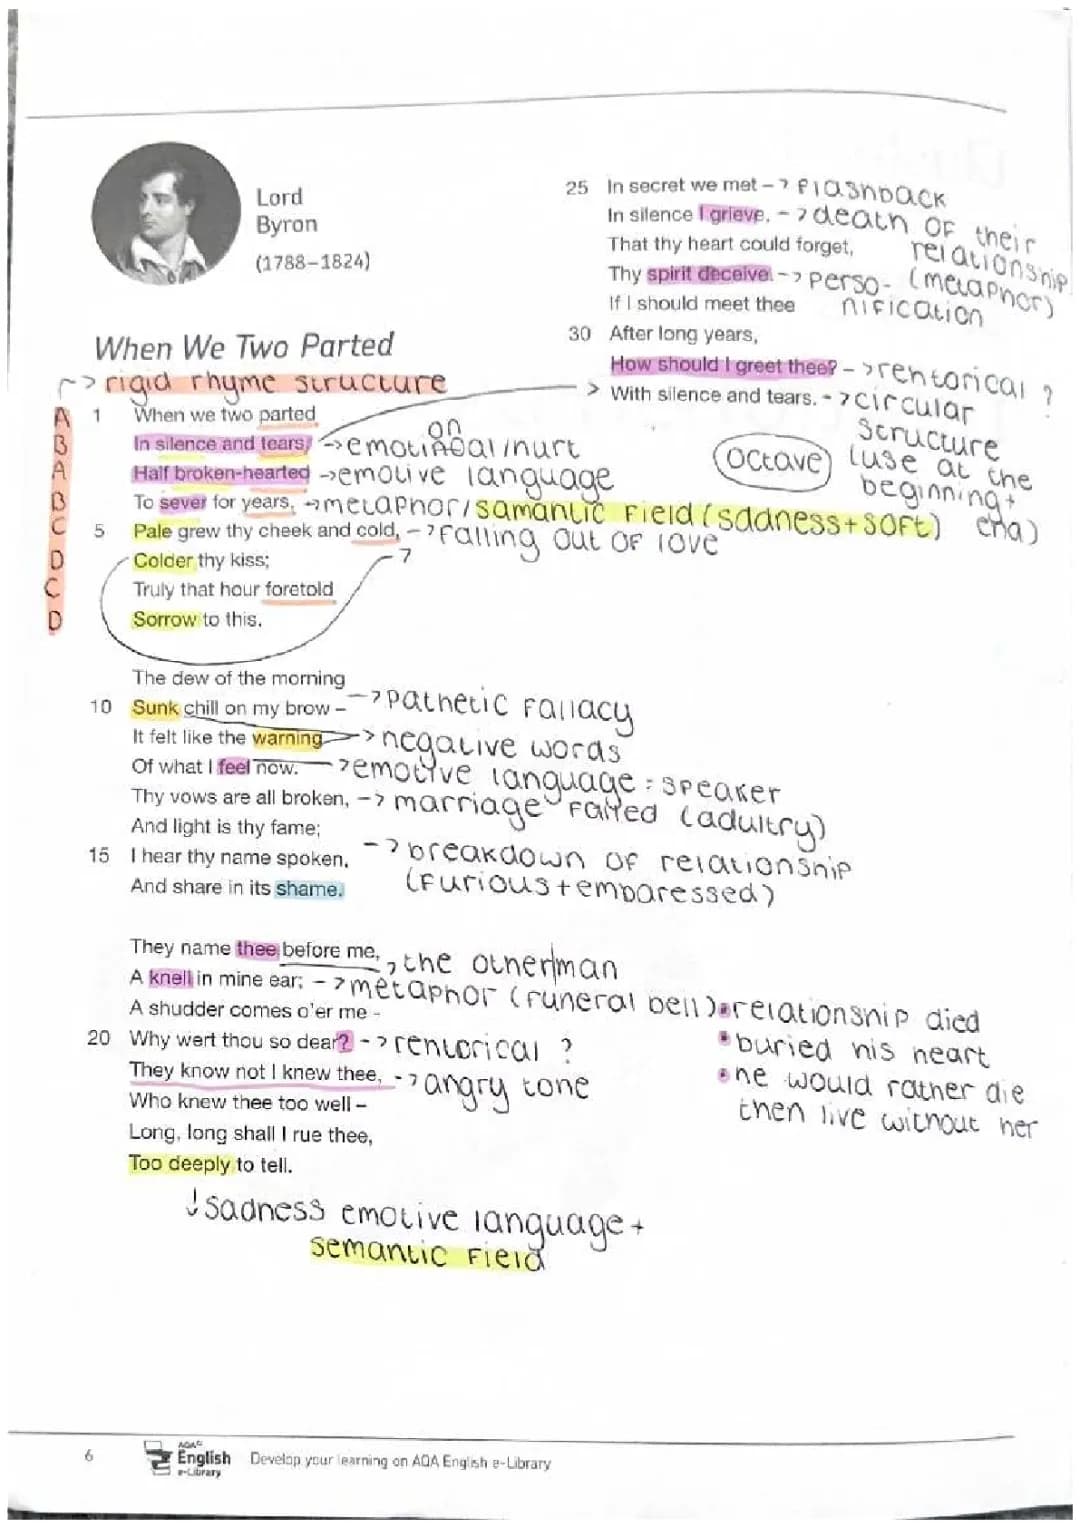 Lord
Byron
(1788–1824)
When We Two Parted
-> rigid rhyme structure
A 1 When we two parted
B In silence and tears, -> emotional/hurt
on
A Half broken-hearted -> emotive language
B To sever for years, -> metaphor/samantic field (sadness+soft)
C 5 Pale grew thy cheek and cold, -> falling out of love
D Colder thy kiss;
C Truly that hour foretold
D Sorrow to this.
The dew of the morning
10 Sunk chill on my brow – -> pathetic fallacy
It felt like the warning -> negative words
Of what I feel now. -> emotive language = speaker
Thy vows are all broken, -> marriage failed (adultry)
And light is thy fame;
15 I hear thy name spoken, -> breakdown of relationship
And share in its shame. (furious+embaressed)
They name thee before me, -> the other man
A knell in mine ear; -> metaphor (funeral bell) • relationship died
A shudder comes o'er me -
• buried his heart
20 Why wert thou so dear? -> rehtorical ?
• he would rather die
then live without her
They know not I knew thee, -> angry tone
Who knew thee too well –
Long, long shall I rue thee,
Too deeply to tell.
↓ sadness emotive language +
semantic field
25 In secret we met -> flashback
In silence I grieve, -> death of their
relationship
(metaphor)
That thy heart could forget,
Thy spirit deceive. -> perso-
nification
If I should meet thee
30 After long years,
How should I greet thee? -> rehtorical ?
> With silence and tears. -> circular
structure
(use at the
beginning +
end)
octave
6 AQA English e-Library Develop your learning on AQA English e-Library